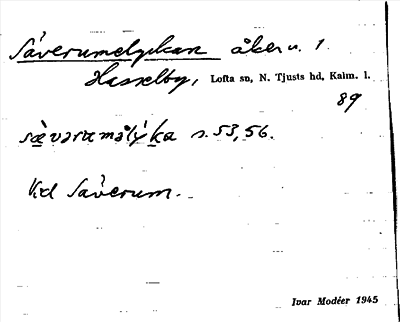 Säverumslyckan åker n. 1
Hasselby, Lofta sn, N. Tjusts hd, Kalm. l.
89
s. 53, 56.
Vid Säverum.
Ivar Modéer 1945